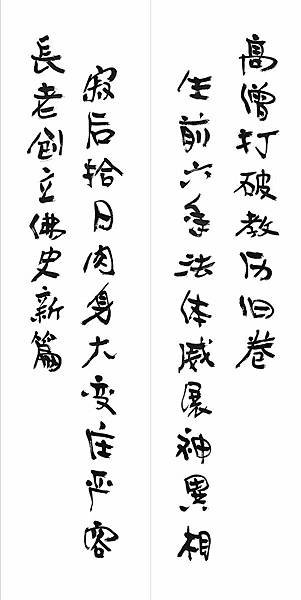 高僧打破教历旧卷
生前六年法体威展神異相
長老创立佛史新篇
寂后拾日肉身大变庄严容